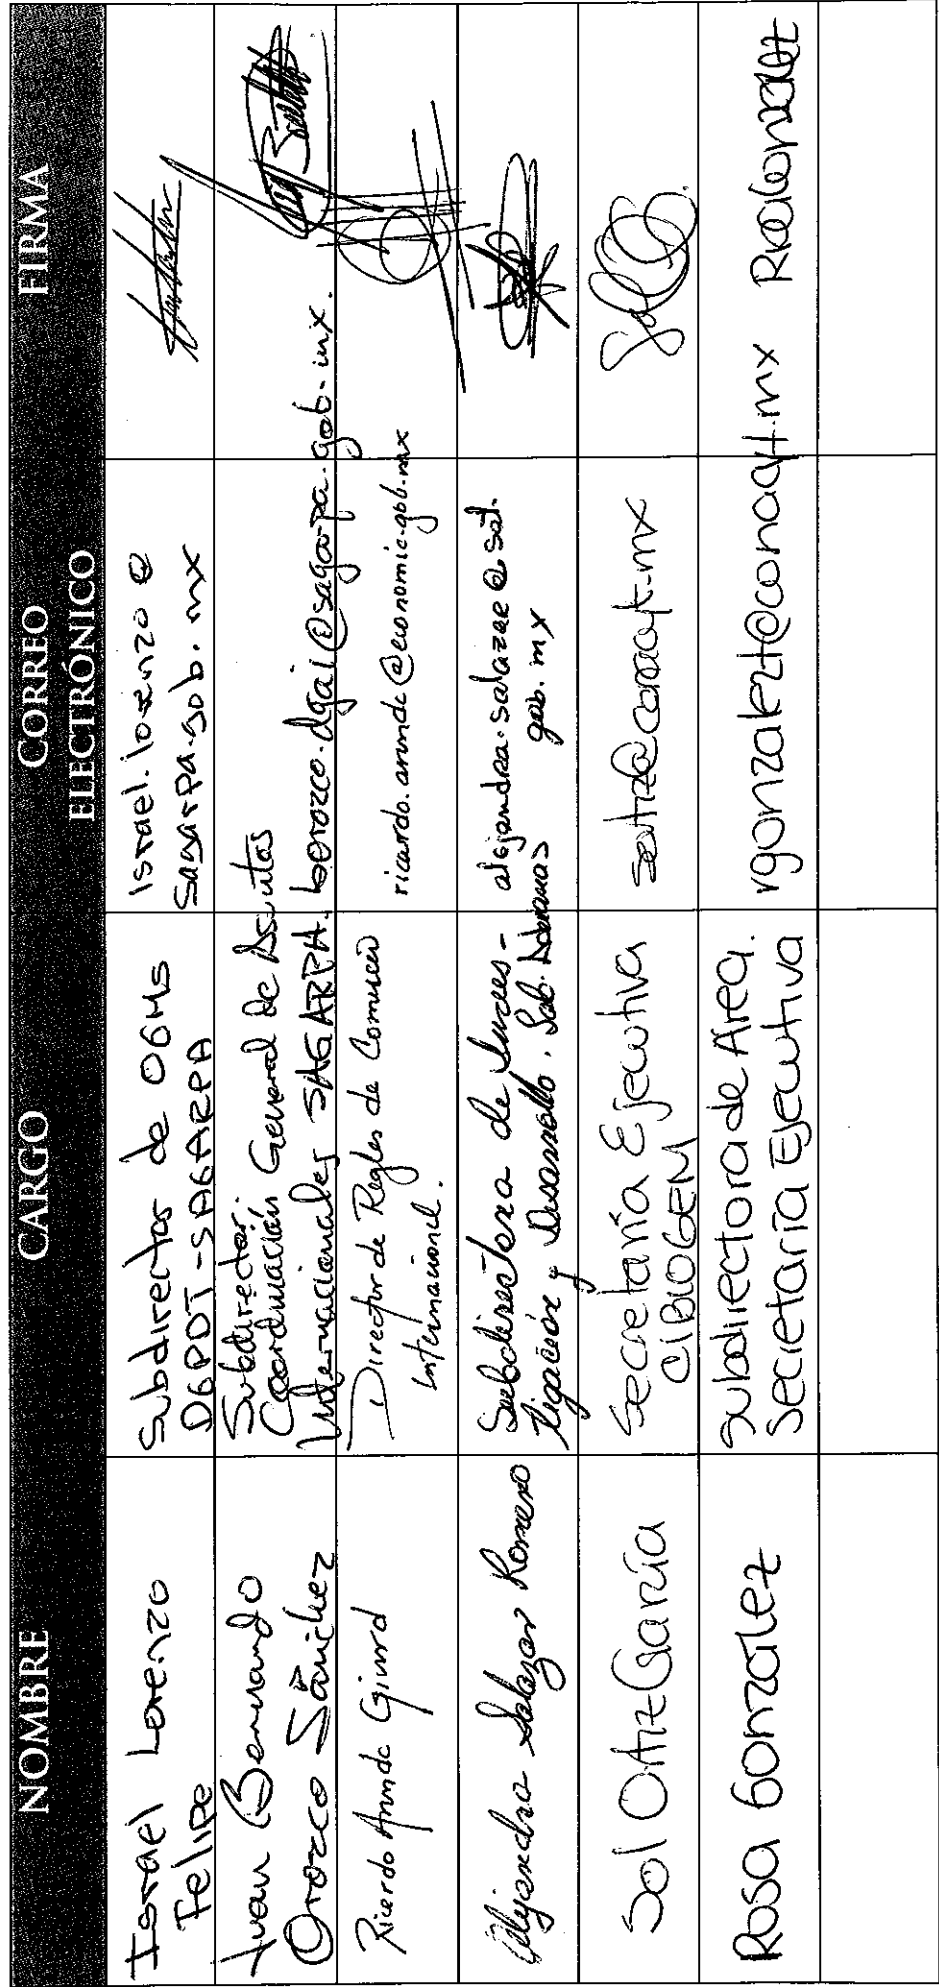 NOMBRE
CARGO
CORREO
ELECTRÓNICO
FIRMA
Israel Lorenzo
Felipe
Subdirector de OGMs
DGPDT-SAGARPA
Israel.lorenzo@
sagarpa.gob.mx
Juan Bernardo
Orozco Sánchez
Subdirector.
Coordinación General de Asuntos
Internacionales SAGARPA.
borozco.dgai@sagarpa.gob.mx.
Ricardo Aranda Girard
Director de Reglas de Comercio
Internacional.
ricardo.aranda@economia.gob.mx
Alejandra Salazar Romero
Subdirectora de
y Desarrollo. Sub. Aduanas
alejandra.salazar@sat.
gob.mx
Sol Ortiz García
Secretaría Ejecutiva
CIBIOGEM
sortiz@conacyt.mx
Rosa Gonzalez
Subdirectora de Área.
Secretaría Ejecutiva
rgonzalezt@conacyt.mx